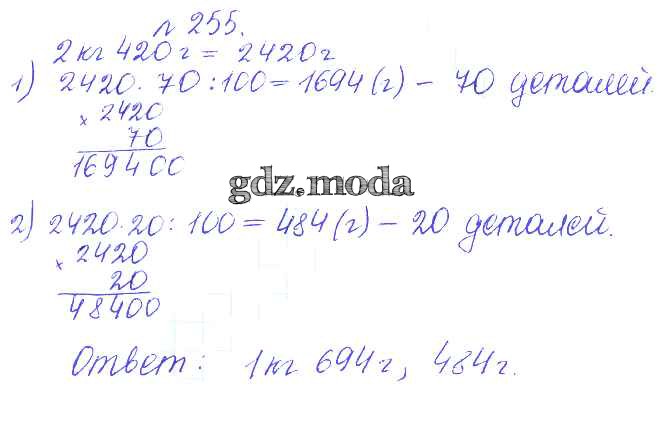 № 255.
2 кг 420 г = 2420 г
1) 2420 · 70 : 100 = 1694 (г) – 70 деталей.
× 2420
70
169400
gdz.moda
2) 2420 · 20 : 100 = 484 (г) – 20 деталей.
× 2420
20
48400
Ответ: 1 кг 694 г, 484 г.